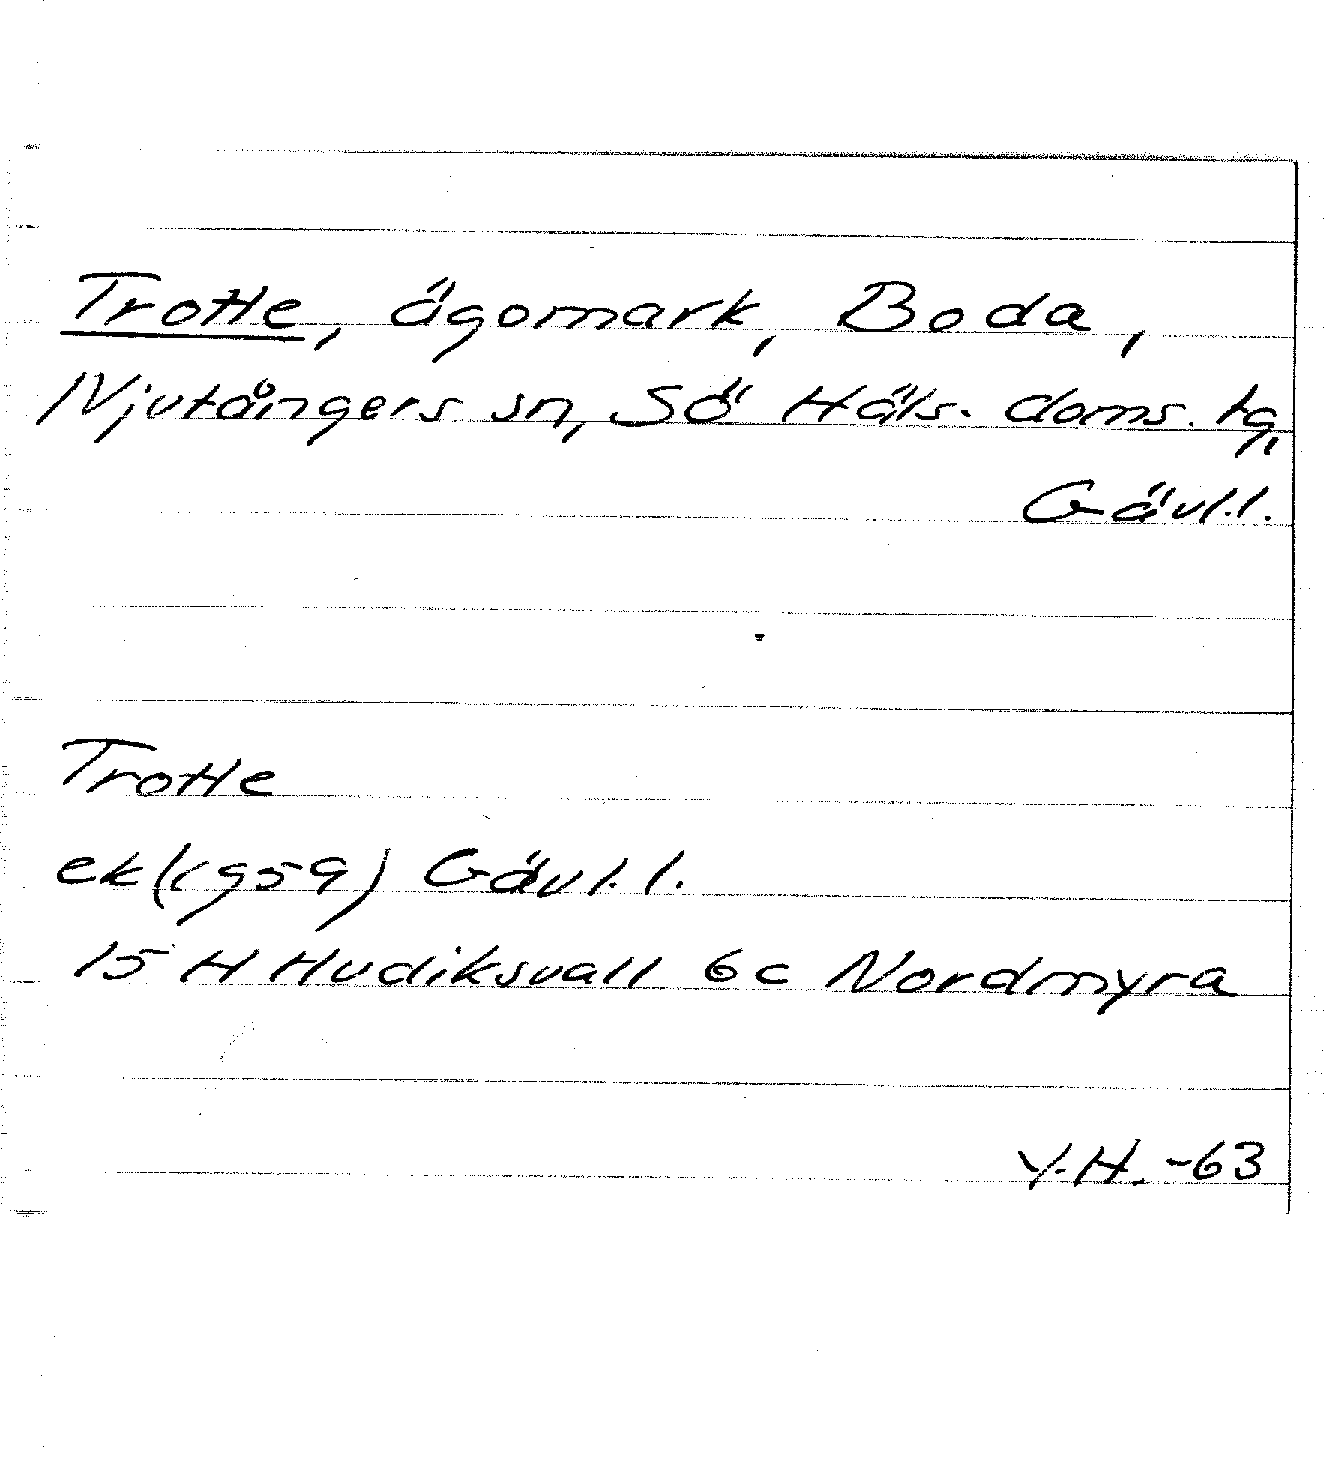 Trotte, ägomark, Boda,
Njutångers sn, Sö Häls. doms. tg,
Gävl.l.
Trotte
ek (1959) Gävl.l.
15 H Hudiksvall 6c Nordmyra
Y.H. -63